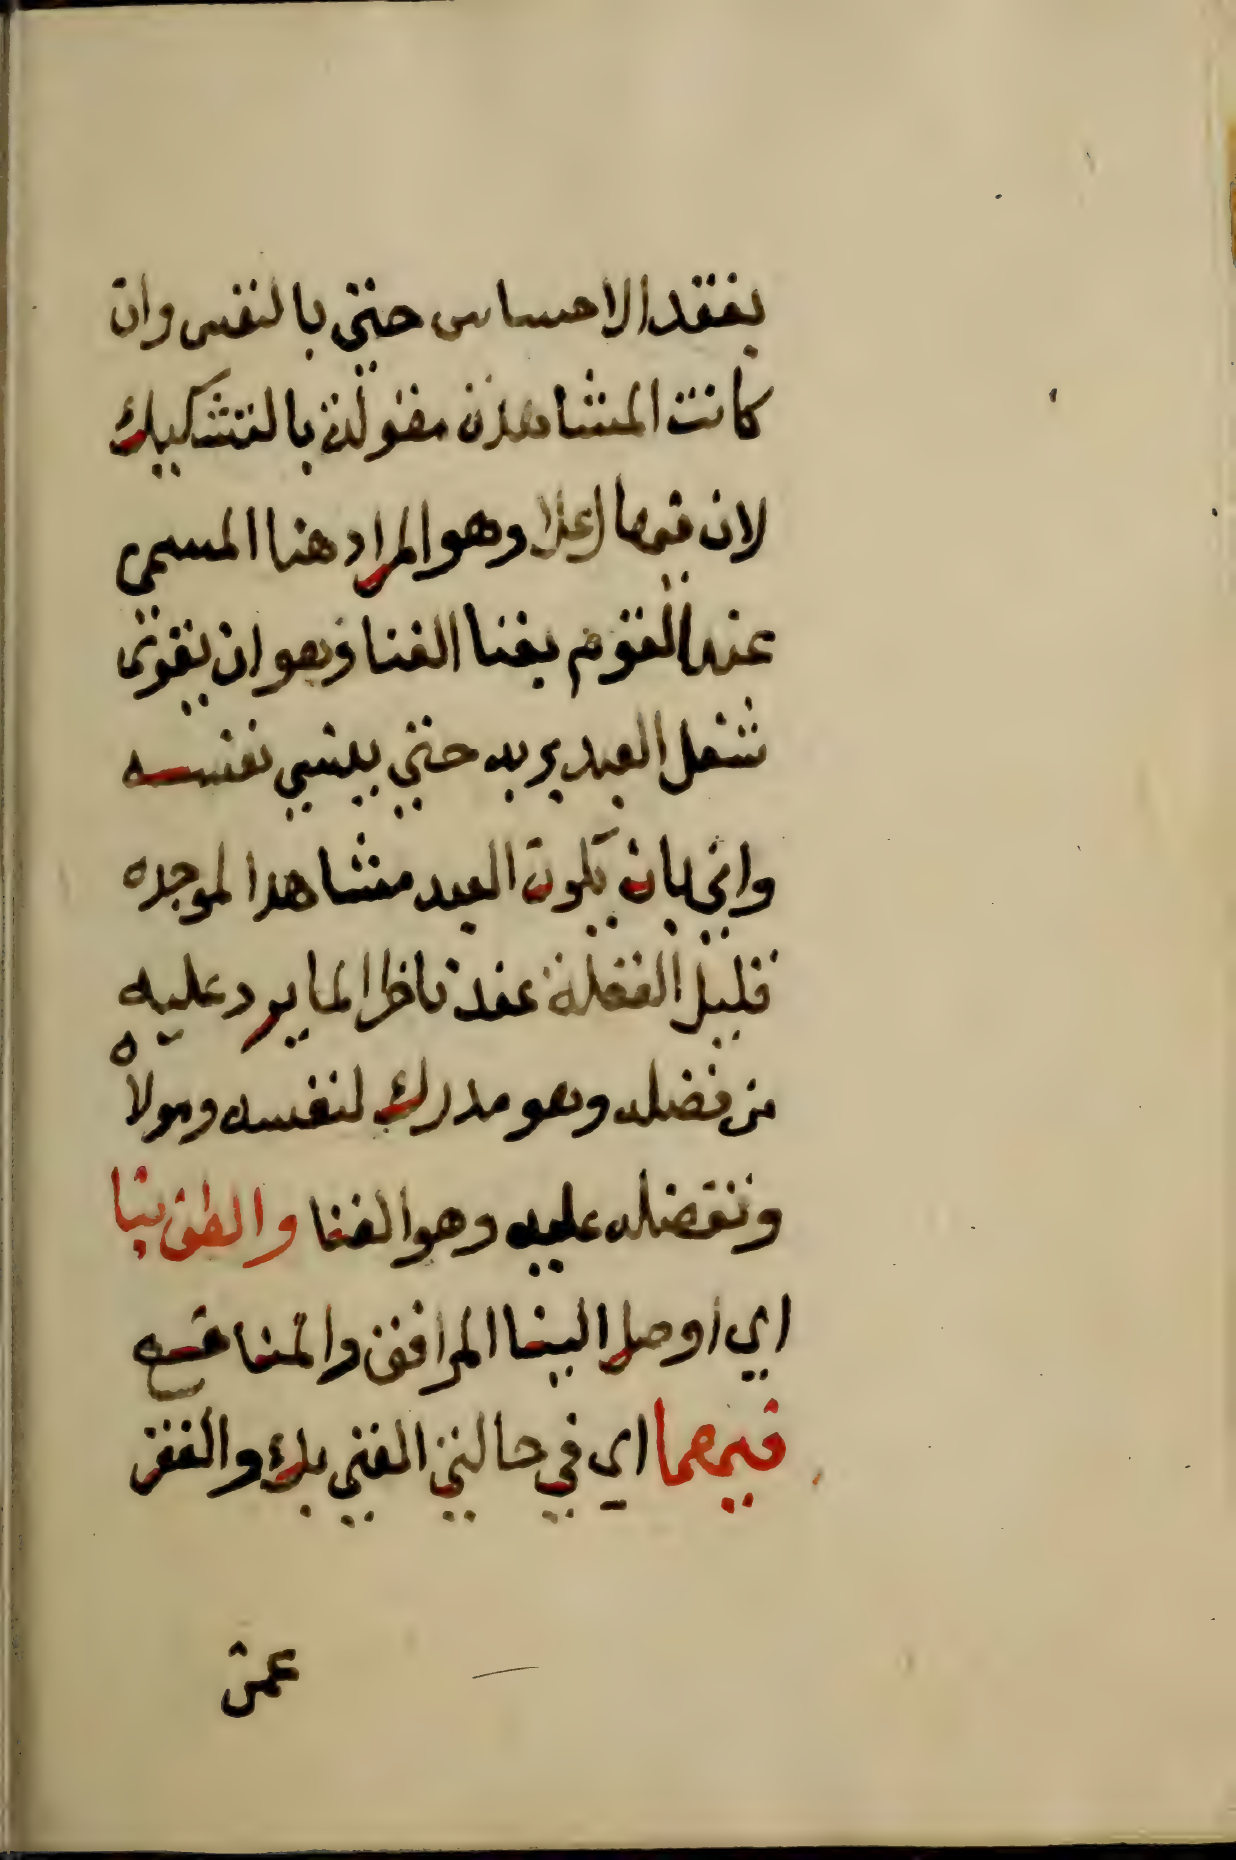 بفقد الاحساس حتى بالنفس وان
كانت المشاهدة مقولة بالتشكيك
لان فيها اعلا وهو المراد هنا المسمى
عند القوم بفنا الفنا وهو ان يقوى
شغل العبد بربه حتي ينسي نفسه
واني بان يكون العبد مشاهدا لموجده
قليل الغفلة عنه ناظرا لما يرد عليه
من فضله وهو مدرك لنفسه ومولاه
وتفضله عليه وهو الفنا والطف بنا
اي اوصل الينا المرافق والمنافسه
فيهما اي في حالتي الغني بك والفقر
عمن